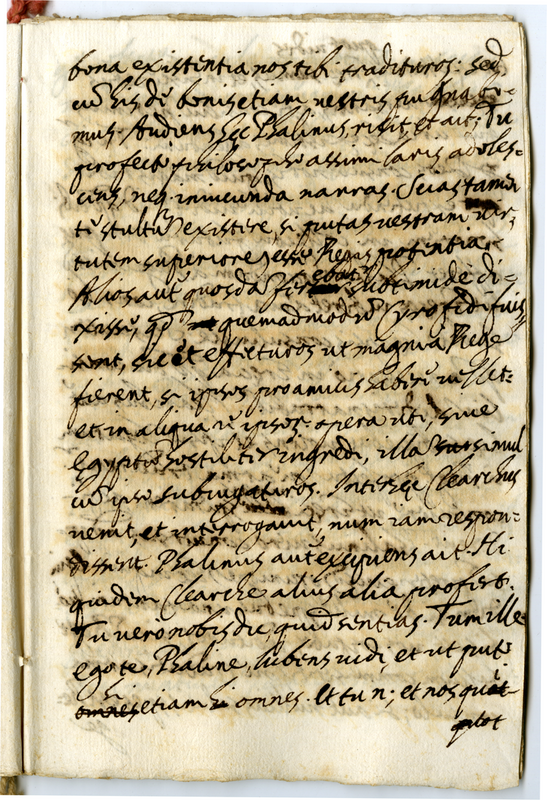 bona existentia nos tibi tradituros: sed
cū his dē bonis etiam vestris pugnabi-
mus. Audiens hęc Phalinus, risit, et ait: Tu
profecto philosopho assimilaris adoles-
cens, neq iniucunda narras. Scias tamen
tē stultū existere, si putas vestram vir-
tutem superiorē esse Regis potentia.
Alios aut quosdā ferebat subtimide di-
xisse, qd quemadmodū Cyro fidi fuis-
sent, sic et effecturos ut magnā Rege
fierent, si ipsos pro amicis habere vellet:
et in aliqua re ipsor opera uti, sive
egyptū hostiliter ingredi, illā simul
cū ipso subiugaturos. Inter hęc Clearchus
venit, et interrogavit, num iam respon-
dissent. Phalinus autē excipiens ait. Hi
quidem Clearche alius alia profert.
Tu vero nobis dic, quid sentias. Tum ille
ego te, Phaline, lubens vidi, et ut puto
etiam hi omnes. Et tu n; et nos quit
quot